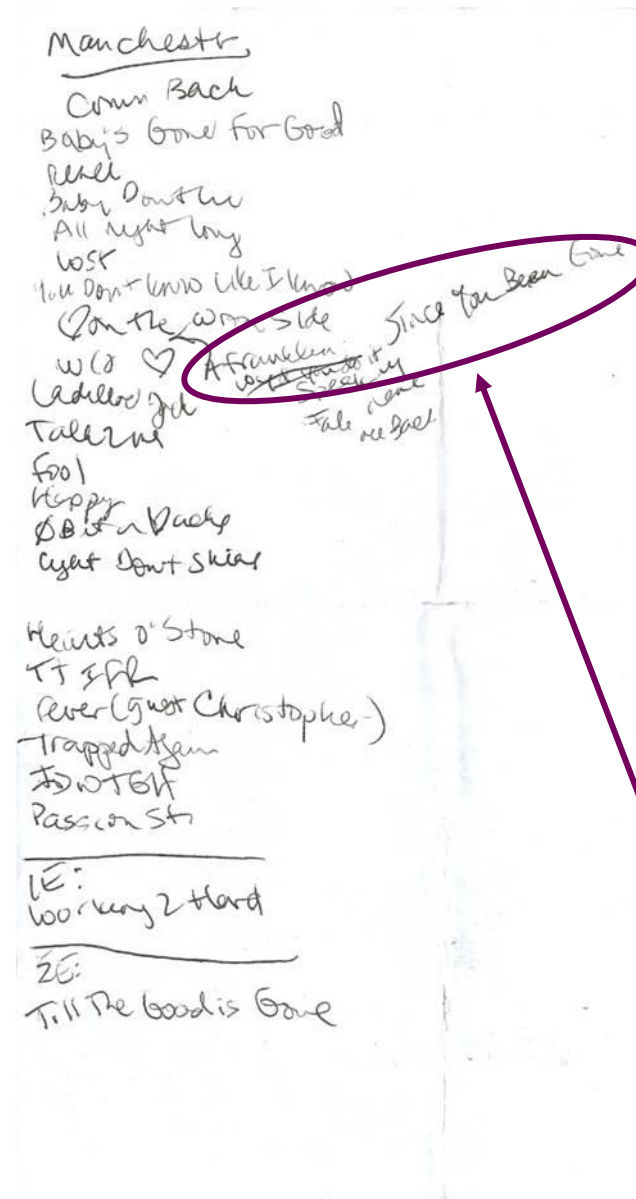 Manchestr
Comin Back
Baby's Gone For Good
Baby Dont Lie
All night long
Lost
You Don't know like I know
♡ on the wrong side
w/o ♡ A franklin Since You Been Gone
Cadillac Jack
Fool
Happy
Light Don't Shine
Hearts o' Stone
Fever (guest Christopher)
Trapped Again
IDWTGH
Passion St
1E:
Working 2 Hard
2E:
Till The Good is Gone